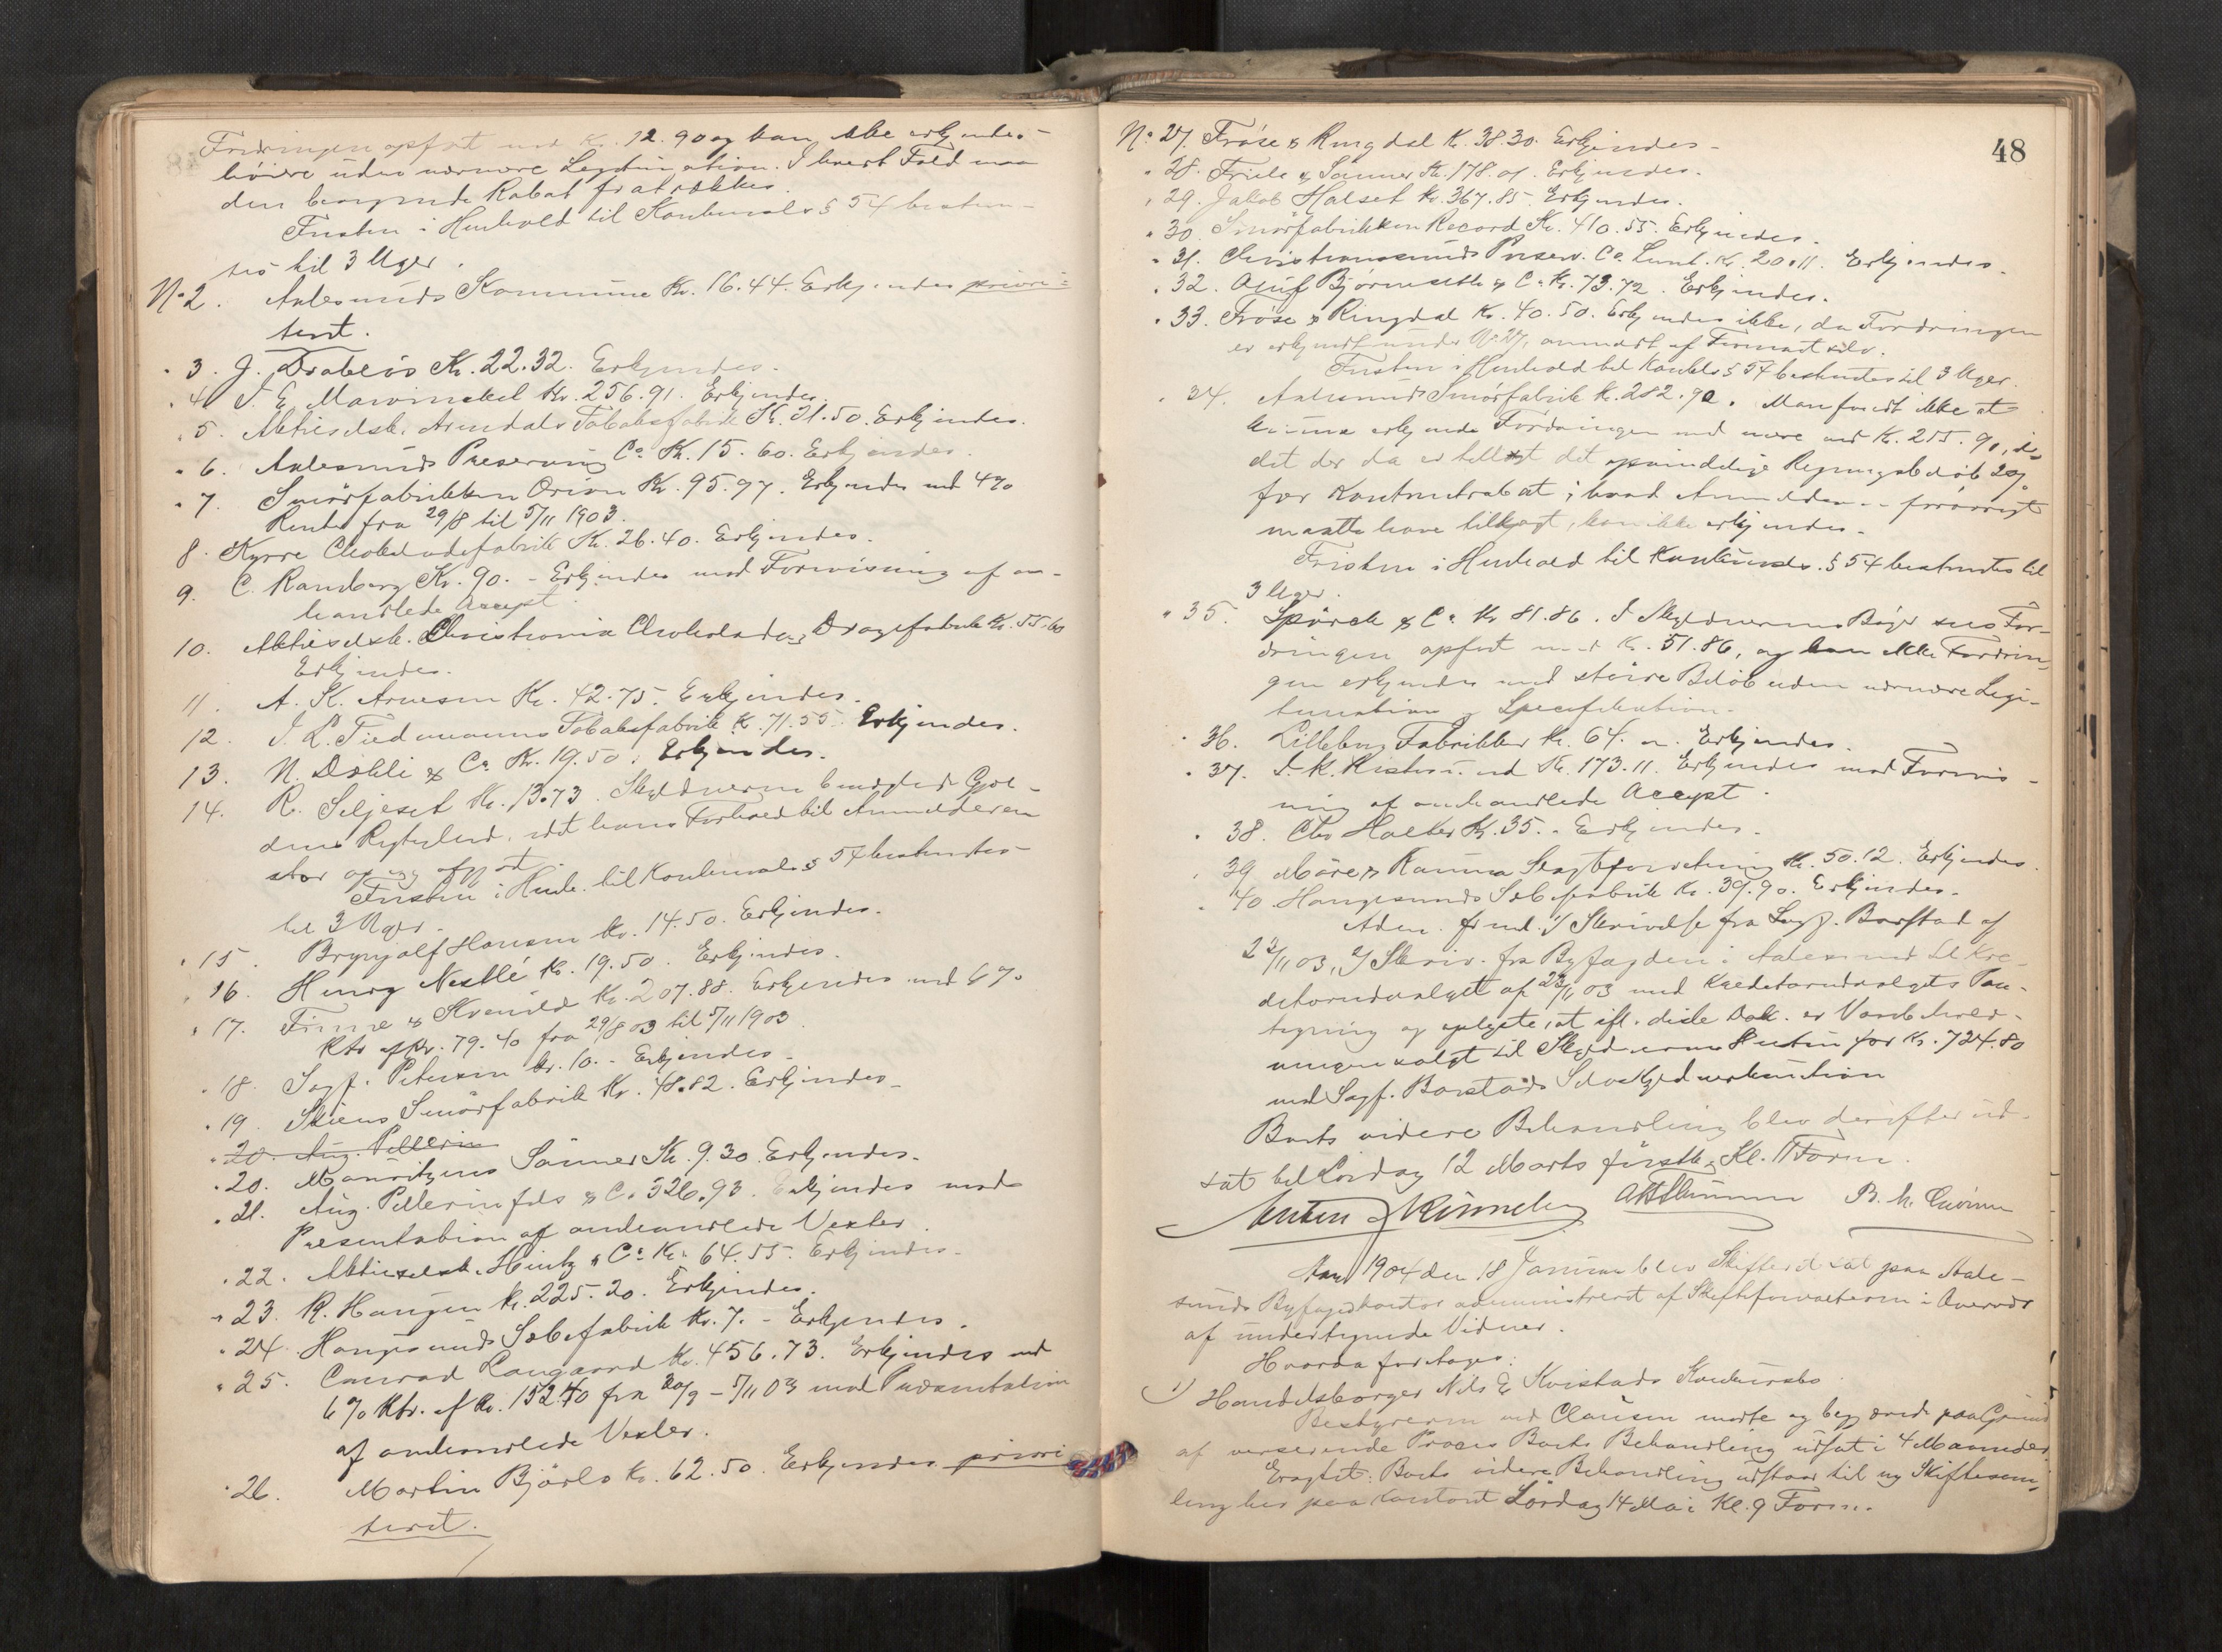 Fordringen opført med Kr. 12.90 og kan ikke erkjendes
høiere uden nærmere Legitimation. I hvert Fald maa
den beregnede Rabat fratrækkes.
Fristen i Henhold til Konkursl. § 54 bestem-
tes til 3 Uger.
No 2. Aalesunds Kommune Kr. 16.44. Erkjendes priori-
teret.
" 3. J. Drabløs Kr. 22.32. Erkjendes.
" 4 J. E. Mowinckel Kr. 256.91. Erkjendes.
" 5. Aktieselsk. Arendals Tobaksfabrik Kr. 31.50. Erkjendes.
" 6. Aalesunds Preserving Co Kr. 15.60. Erkjendes.
" 7. Smørfabrikken Orion Kr. 95.97. Erkjendes med 4%
Renter fra 29/8 til 5/11 1903.
8. Kyrre Chokoladefabrik Kr. 26.40. Erkjendes.
9. C. Ramberg Kr. 90.- Erkjendes mod Forevisning af om-
handlede Accept.
10. Aktieselsk. Christiania Chokolade & Dragefabrik Kr. 55.60
Erkjendes.
11. A. K. Arnesen Kr. 42.75. Erkjendes.
12. J. L. Tiedemanns Tobaksfabrik K. 71.55. Erkjendes.
13. N. Dahli & Co Kr. 19.50. Erkjendes.
14. R. Seljeset Kr. 13.73. Skyldneren benægter Gjæl-
dens Rigtighed, idet hans Forhold til Anmelderen
skal være opgjort.
Fristen i Henh. til Konkursl. § 54 bestemtes
til 3 Uger.
" 15. Brynjolf Hansen Kr. 14.50. Erkjendes.
" 16. Henry Nestlé Kr. 19.50. Erkjendes.
" 17. Finne & Kvenild Kr. 207.88. Erkjendes med 6%
Rtr af Kr. 79.40 fra 29/8 03 til 5/11 1903.
" 18. Sagf. Petersen Kr. 10.- Erkjendes.
" 19. Skiens Smørfabrik Kr. 48.82. Erkjendes.
" 20. Aug. Pellerin
" 20. Mauritzens Sønner Kr. 9.30. Erkjendes.
" 21. Aug. Pellerin fils & Co 326.93. Erkjendes mod
Presentation af omhandlede Vexler.
" 22. Aktieselsk. Hintz & Co Kr. 64.55. Erkjendes.
" 23. R. Haugen Kr. 225.20. Erkjendes.
" 24. Haugesunds Sæbefabrik Kr. 7.- Erkjendes.
" 25. Conrad Langaard Kr. 456.73. Erkjendes med
6% Rtr. af Kr. 152.40 fra 20/9 - 5/11 03 mod Præsentation
af omhandlede Vexler.
" 26. Martin Bjørlo Kr. 62.50. Erkjendes priori-
teret.
48
No 27. Frøse & Ringdal K. 38.30. Erkjendes.
" 28. Friele & Sønner Kr. 178.01. Erkjendes.
" 29. Jakob Halset Kr. 367.85. Erkjendes.
" 30. Smørfabrikken Record Kr. 410.55. Erkjendes.
" 31. Christianssunds Preserv. Co. Kr. 20.11. Erkjendes.
" 32. Oluf Bjørnseth & Co Kr. 73.72. Erkjendes.
" 33. Frøse & Ringdal Kr. 40.50. Erkjendes ikke, da Fordringen
er erkjendt under No 27, anmeldt af Firmaet selv.
Fristen i Henhold til Konkl. § 54 bestemtes til 3 Uger.
" 34. Aalesunds Smørfabrik Kr. 282.90. Man fandt ikke at
kunne erkjende Fordringen med mere end Kr. 255.90, i-
det der da er tillagt det oprindelige Regningsbeløb 2%
for Kontantrabat; hvad Anmelderen forøvrigt
maatte have tillagt, kan ikke erkjendes.
Fristen i Henhold til Konkursl. § 54 bestemtes til
3 Uger.
" 35. Spörck & Co Kr 81.86. I Skyldnerens Bøger sees For-
dringen opført med Kr. 51.86, og kan ikke Fordrin-
gen erkjendes med større Beløb uden nærmere Legi-
timation & Specifikation.
" 36. Lilleborg Fabrikker Kr. 64. Erkjendes.
" 37. Kr. 173.11. Erkjendes mod Forevis-
ning af omhandlede Accept.
" 38. Chr Holter Kr. 35.- Erkjendes.
" 39 Møre & Kr. 50.12. Erkjendes.
" 40 Haugesunds Sæbefabrik Kr. 39.90. Erkjendes.
Adm. freml. 1/ Skrivelse fra Sagf. Barstad af
23/11 03, 2/ Skriv. fra Byfogden i Aalesund til Kre-
ditorudvalget af 23/11 03 med Kreditorudvalgets Paa-
tegning og oplyste, at ifl. disse Dok. er Varebehold-
ningen solgt til Skyldnerens Hustru for Kr. 724.80
med Sagf. Barstads Selvskyldnerkaution
Boets videre Behandling blev derefter ud-
sat til Lørdag 12 Marts førstk. Kl. 11 Form.
Aar 1904 den 18 Januar blev Skifteret sat paa Aale-
sunds Byfogedkontor administreret af Skifteforvalteren i Overvær
af undertegnede Vidner.
Hvorda foretoges:
1) Handelsborger Nils E Kvistads Konkursbo.
Bestyreren ved Clausen mødte og begjærede paa Grund
af verserende Proces Boets Behandling udsat i 4 Maaneder.
Eragtet: Boets videre Behandling udstaar til ny Skiftesam-
ling her paa Kontoret Lørdag 14 Mai Kl. 9 Form.